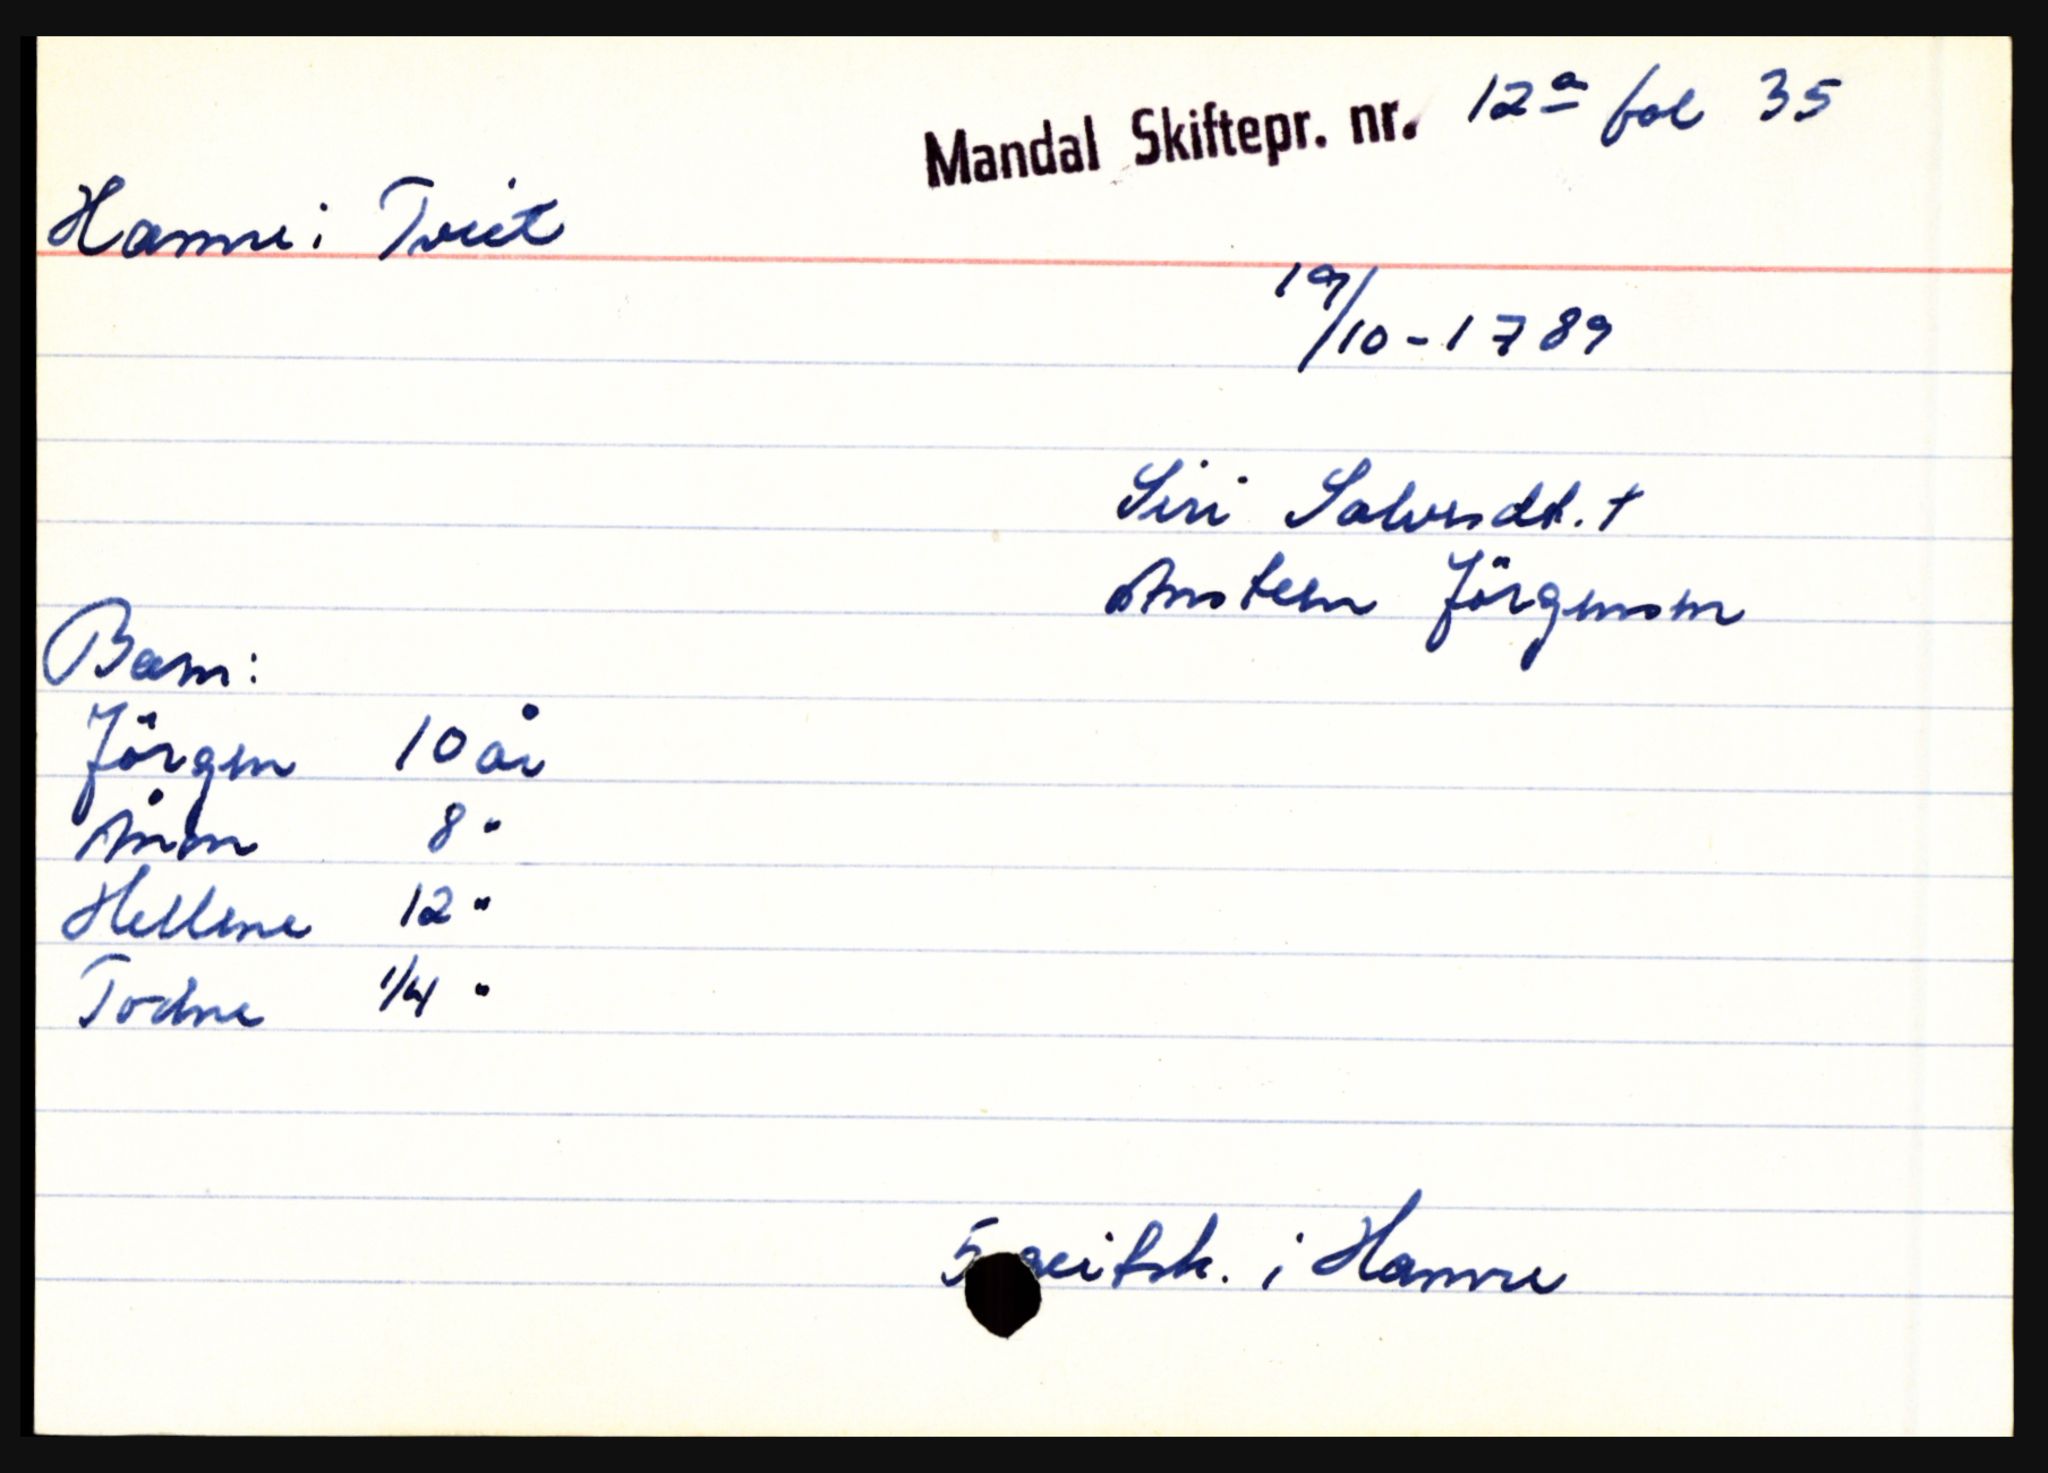 Mandal Skiftepr. nr. 12a fol 35
Hamre i Tveit
19/10-1789
Siri Salvesdt. †
Anstein Jörgensen
Barn:
Jörgen 10 år
Ånen 8 "
Hellene 12 "
Todne 1/4 "
5 geitsk. i Hamre